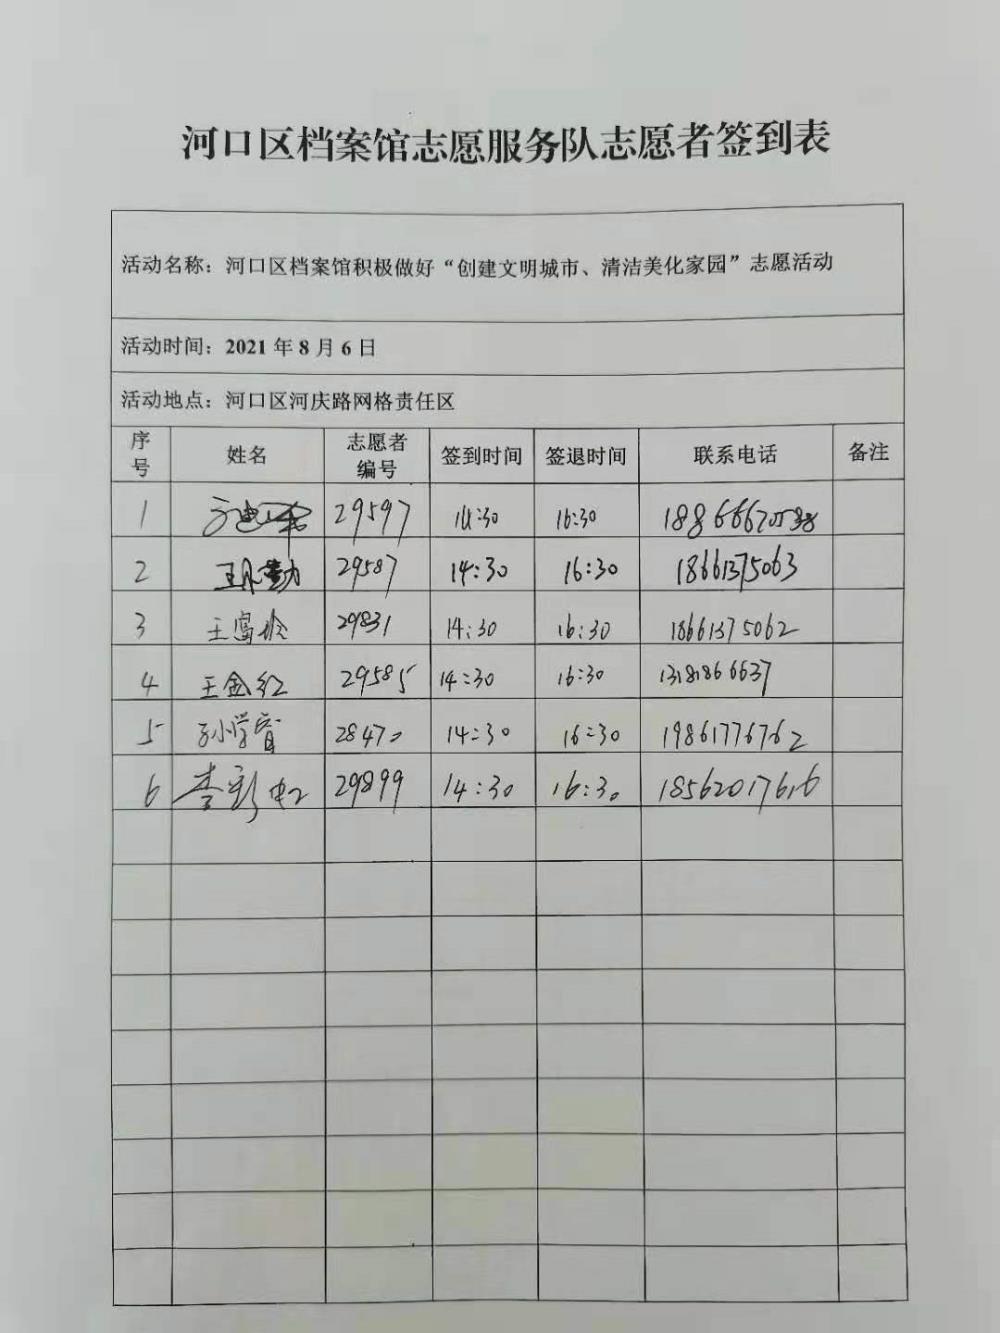 河口区档案馆志愿服务队志愿者签到表
活动名称：河口区档案馆积极做好“创建文明城市、清洁美化家园”志愿活动
活动时间：2021年8月6日
活动地点：河口区河庆路网格责任区
序号 姓名 志愿者编号 签到时间 签退时间 联系电话 备注
1 29597 14:30 16:30
2 29587 14:30 16:30 18661375063
3 王富玲 29831 14:30 16:30 18661375062
4 王金红 29585 14:30 16:30 13181866637
5 28470 14:30 16:30 19861776762
6 李彩虹 29899 14:30 16:30 18562017616